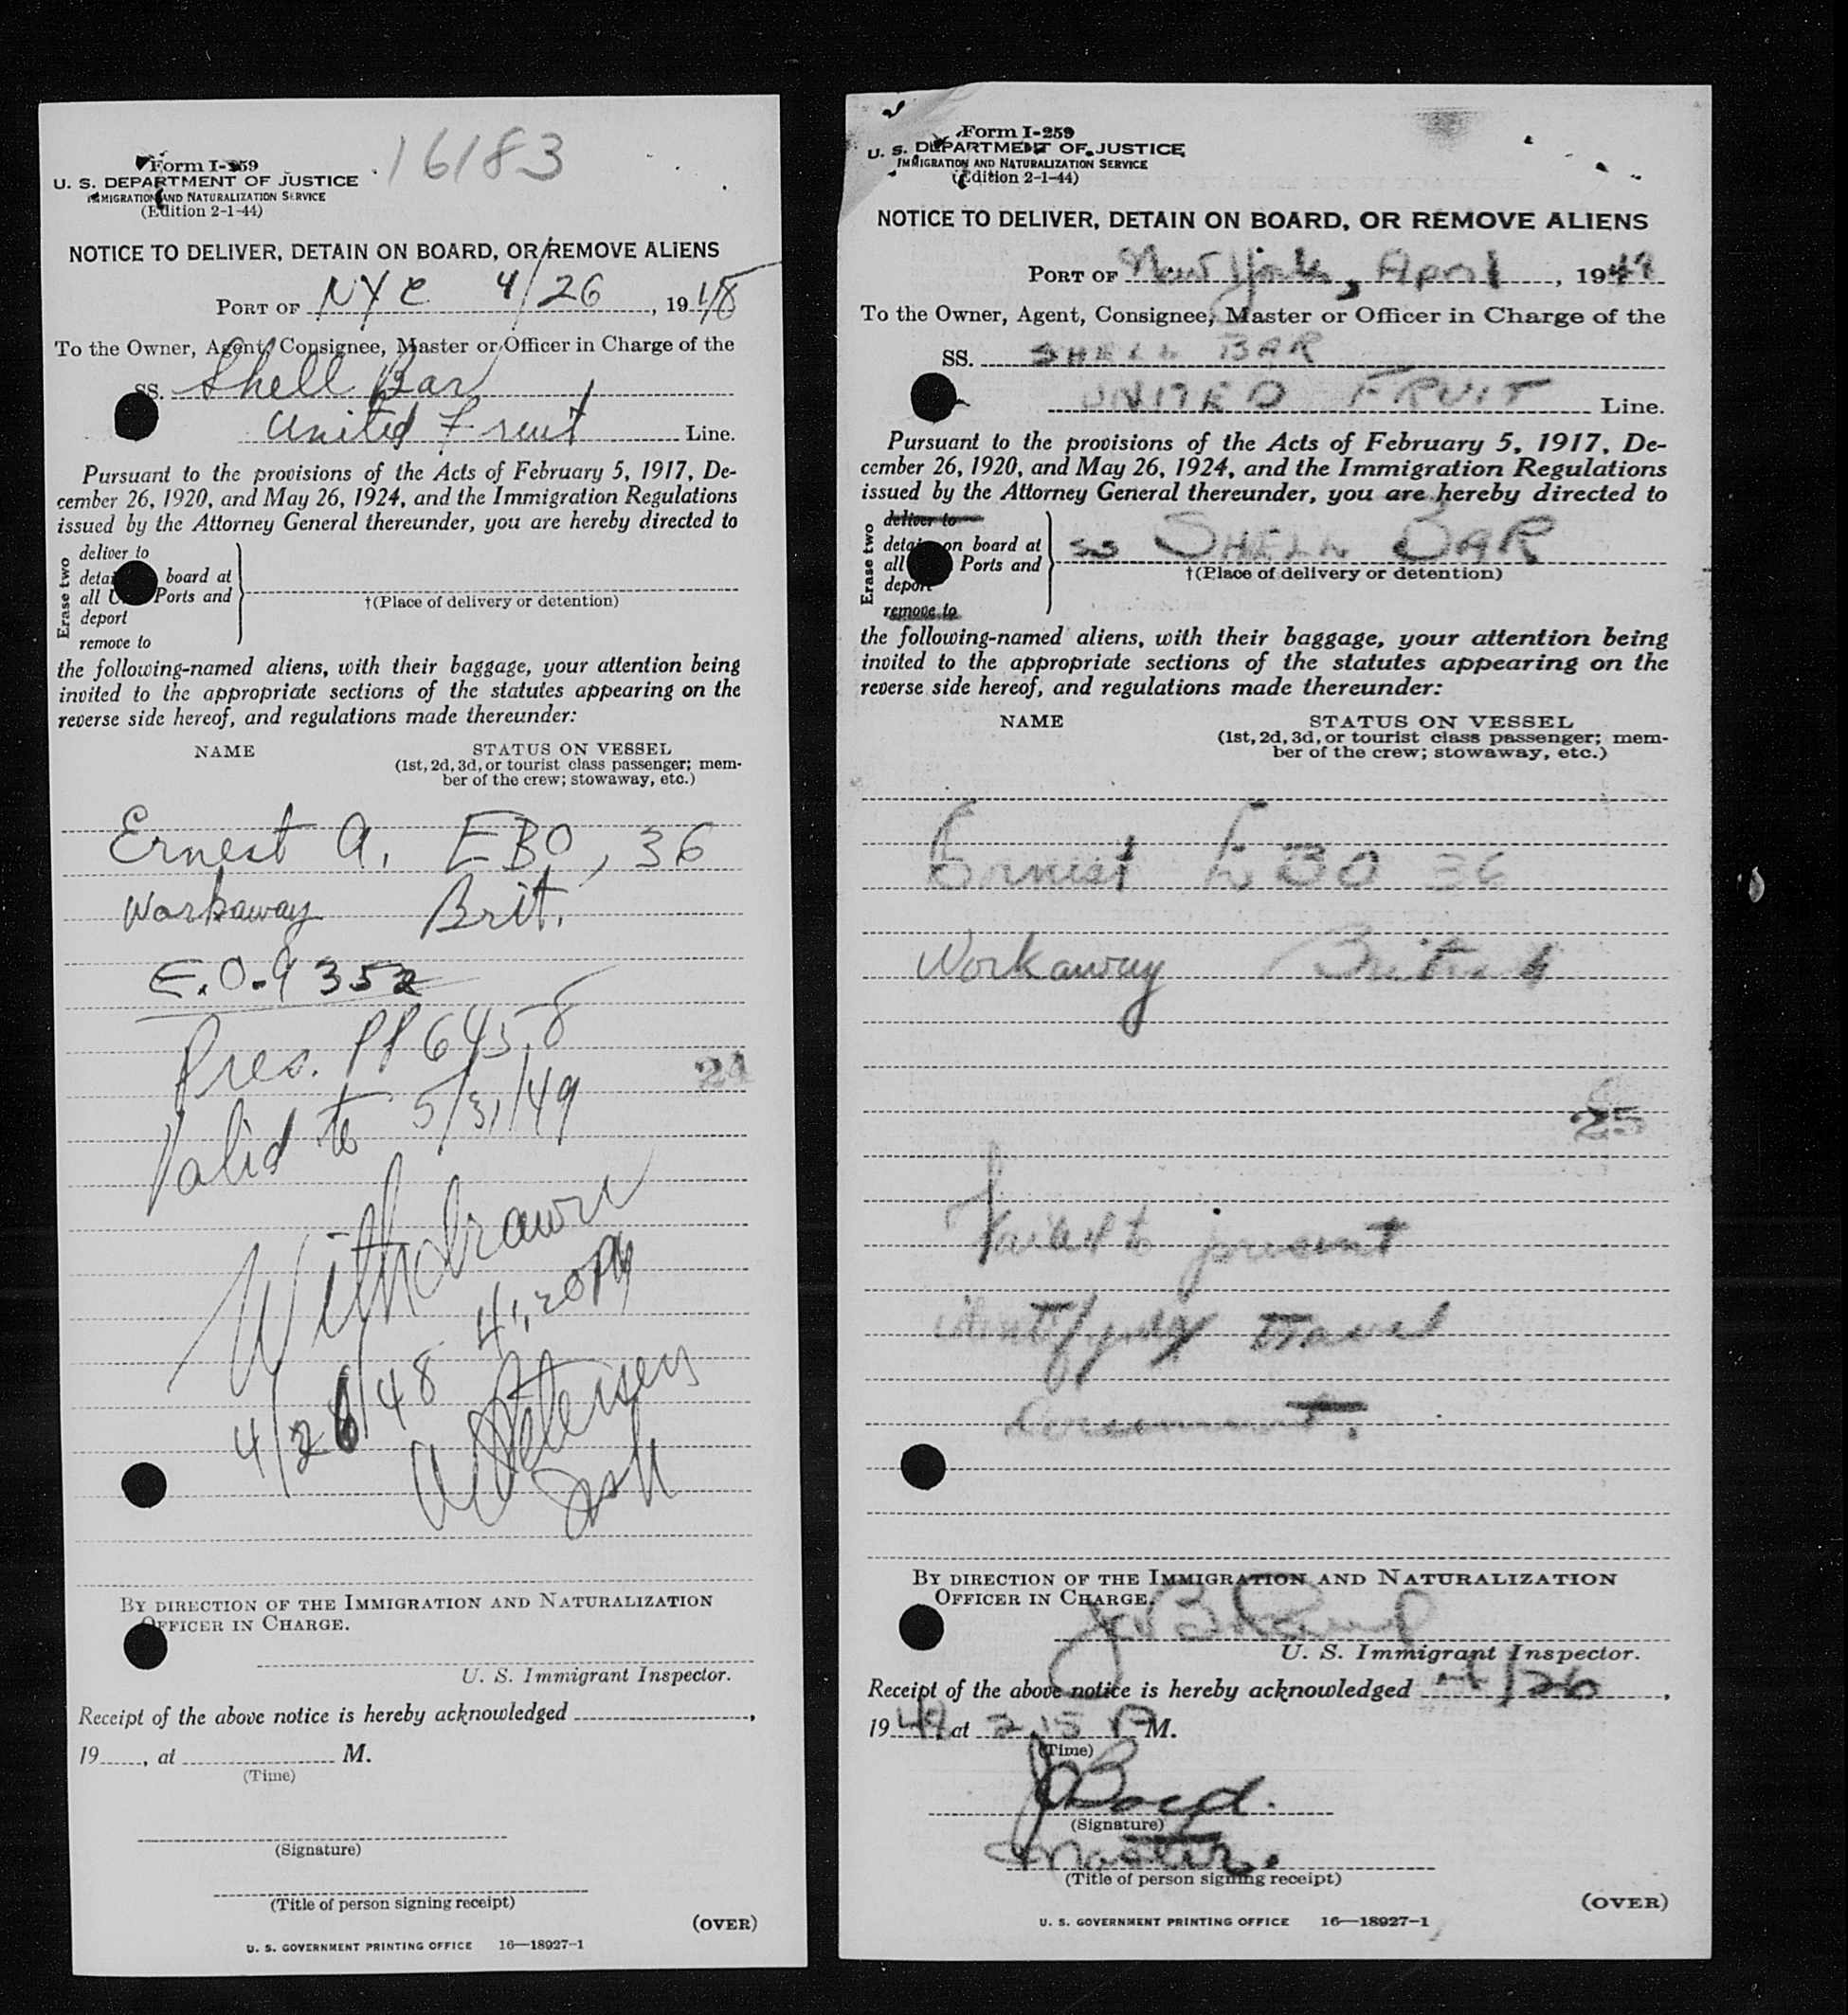 16183
Form I-259
U. S. DEPARTMENT OF JUSTICE
IMMIGRATION AND NATURALIZATION SERVICE
(Edition 2-1-44)
NOTICE TO DELIVER, DETAIN ON BOARD, OR REMOVE ALIENS
PORT OF NYC 4/26, 1948
To the Owner, Agent, Consignee, Master or Officer in Charge of the
SS. Shell Bar
United Fruit Line.
Pursuant to the provisions of the Acts of February 5, 1917, De-
cember 26, 1920, and May 26, 1924, and the Immigration Regulations
issued by the Attorney General thereunder, you are hereby directed to
Erase two
deliver to
detain board at
all U. Ports and
deport
remove to
†(Place of delivery or detention)
the following-named aliens, with their baggage, your attention being
invited to the appropriate sections of the statutes appearing on the
reverse side hereof, and regulations made thereunder:
NAME STATUS ON VESSEL
(1st, 2d, 3d, or tourist class passenger; mem-
ber of the crew; stowaway, etc.)
Ernest A. EBO, 36
Workaway Brit.
E.O. 9352
Pres. PP 6458
24
Valid to 5/31/49
Withdrawn
4/26/48 4:20 PM
Petersen
BY DIRECTION OF THE IMMIGRATION AND NATURALIZATION
OFFICER IN CHARGE.
U. S. Immigrant Inspector.
Receipt of the above notice is hereby acknowledged ,
19 , at M.
(Time)
(Signature)
(Title of person signing receipt)
(OVER)
U. S. GOVERNMENT PRINTING OFFICE 16—18927-1
Form I-259
U. S. DEPARTMENT OF JUSTICE
IMMIGRATION AND NATURALIZATION SERVICE
(Edition 2-1-44)
NOTICE TO DELIVER, DETAIN ON BOARD, OR REMOVE ALIENS
PORT OF New York, April, 1948
To the Owner, Agent, Consignee, Master or Officer in Charge of the
SS. SHELL BAR
UNITED FRUIT Line.
Pursuant to the provisions of the Acts of February 5, 1917, De-
cember 26, 1920, and May 26, 1924, and the Immigration Regulations
issued by the Attorney General thereunder, you are hereby directed to
Erase two
deliver to
detain on board at
all Ports and
deport
remove to
SS SHELL BAR
†(Place of delivery or detention)
the following-named aliens, with their baggage, your attention being
invited to the appropriate sections of the statutes appearing on the
reverse side hereof, and regulations made thereunder:
NAME STATUS ON VESSEL
(1st, 2d, 3d, or tourist class passenger; mem-
ber of the crew; stowaway, etc.)
Ernest EBO 36
Workaway British
25
Failed to present
identifying travel
document.
BY DIRECTION OF THE IMMIGRATION AND NATURALIZATION
OFFICER IN CHARGE.
U. S. Immigrant Inspector.
Receipt of the above notice is hereby acknowledged 4/26,
1948, at 2.15 P M.
(Time)
Boyd.
(Signature)
Master.
(Title of person signing receipt)
(OVER)
U. S. GOVERNMENT PRINTING OFFICE 16—18927-1